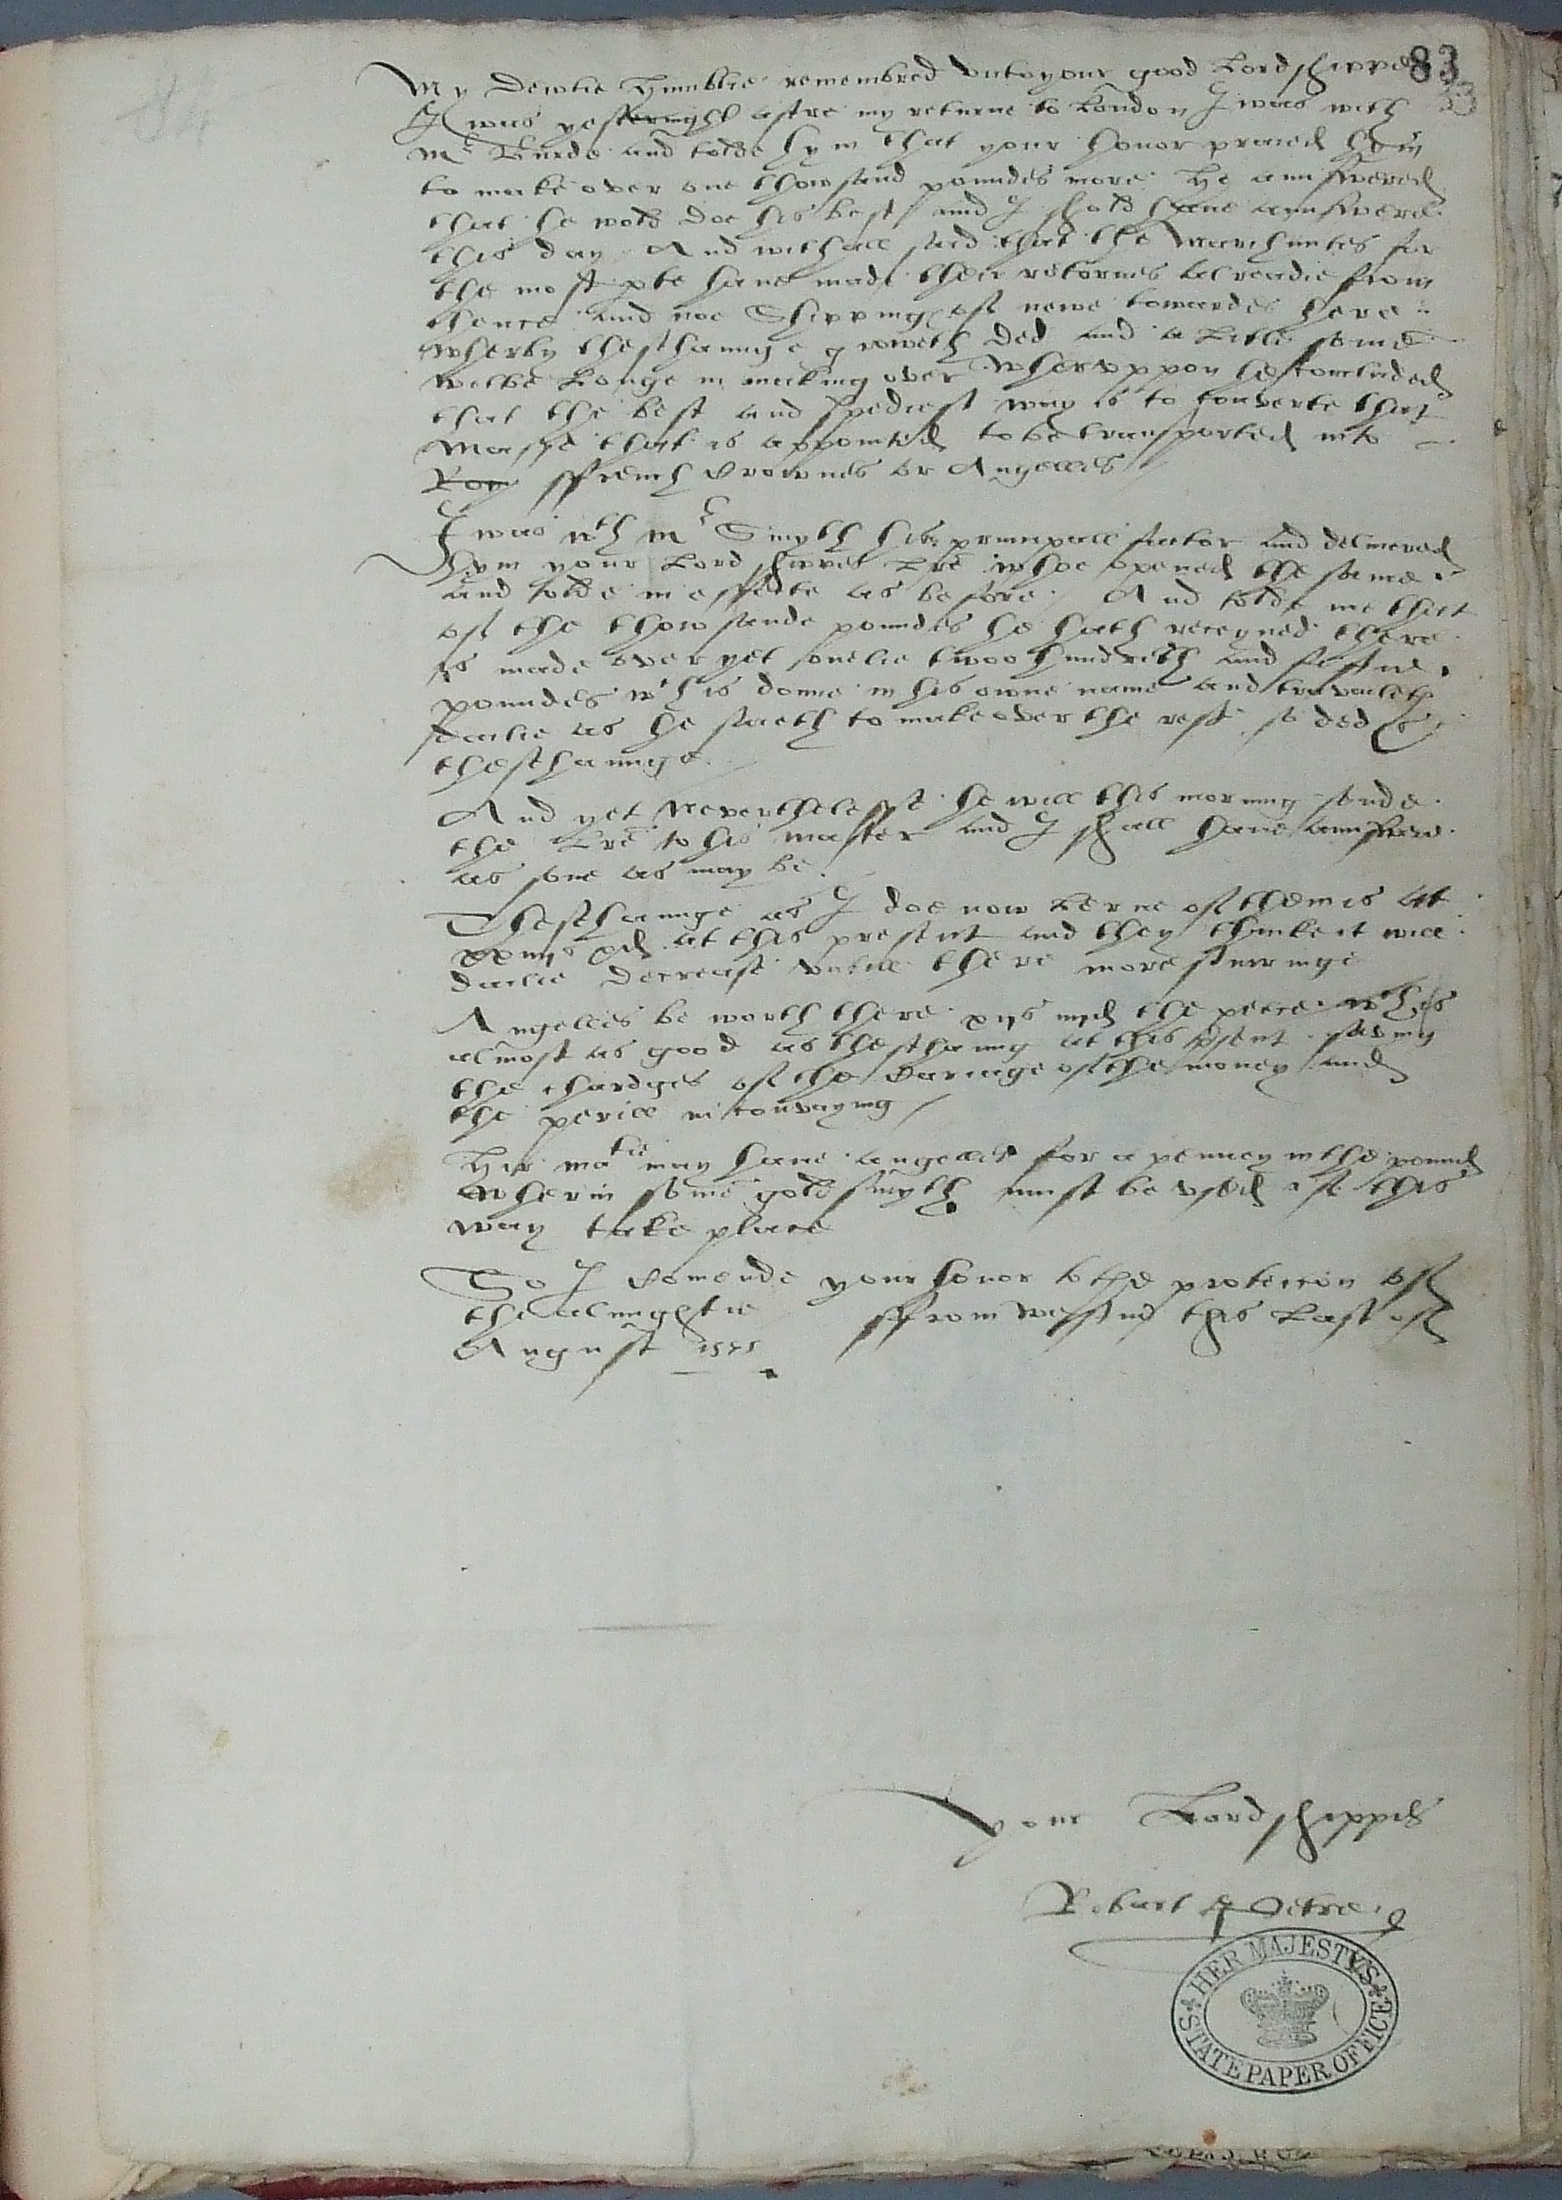 83
84
My dewtie humblie remembred vnto your good Lordshippe
I was yesternight aftre my returne to London I was with
Mr Burde and tolde hym that your honor praied hym
to make over one thowsand poundes more. He aunswered
that he wold doe his best and I shold have aunswere
this day. And withall said that the Marchuntes for
the most pte have made their retornes alreadie from
thence and noe Shipping of newe towardes there
wherby theschaunge groweth ded and a litle some
wilbe longe in making over. Whervppon he concluded
that the best and spediest way is to converte that
masse that is appointed to be transported into
Rom ffrench Crownes or Angelles /
I was wth Mr Smyth his principall factor and delivered
hym your Lordshippes Lre whoe opened the same
and tolde in effecte as before. / And tolde me that
of the thowsande poundes he hath receyved there
is made over yet onelie twoo hundreth and fiftie
poundes wch is donne in his owne name and travaileth
dailie as he saieth to make over the rest. so ded is
theschaunge.
And yet neverthelesse he will this morning sende
the Lre to his master and I shall have aunswere
as sone as may be.
Theschaunge as I doe now lerne of them is at
xxiiijs xd at this present and they thinke it will
dailie decrease vntill there more sturringe
Angelles be worth there xijs iiijd the pece. wch is
almost as good as theschaung at this psent. saving
the chardges of the Cariage of the money and
the perill in convaying /
Hir matie may have angelles for a penney in the pound
wherin some goldsmyth must be vsed if this
way take place
So I Comende your honor to the protection of
the almightie ffrom Westm this Last of
August 1575
your Lordshippes
Robart Petre
HER MAJESTY'S
STATE PAPER OFFICE